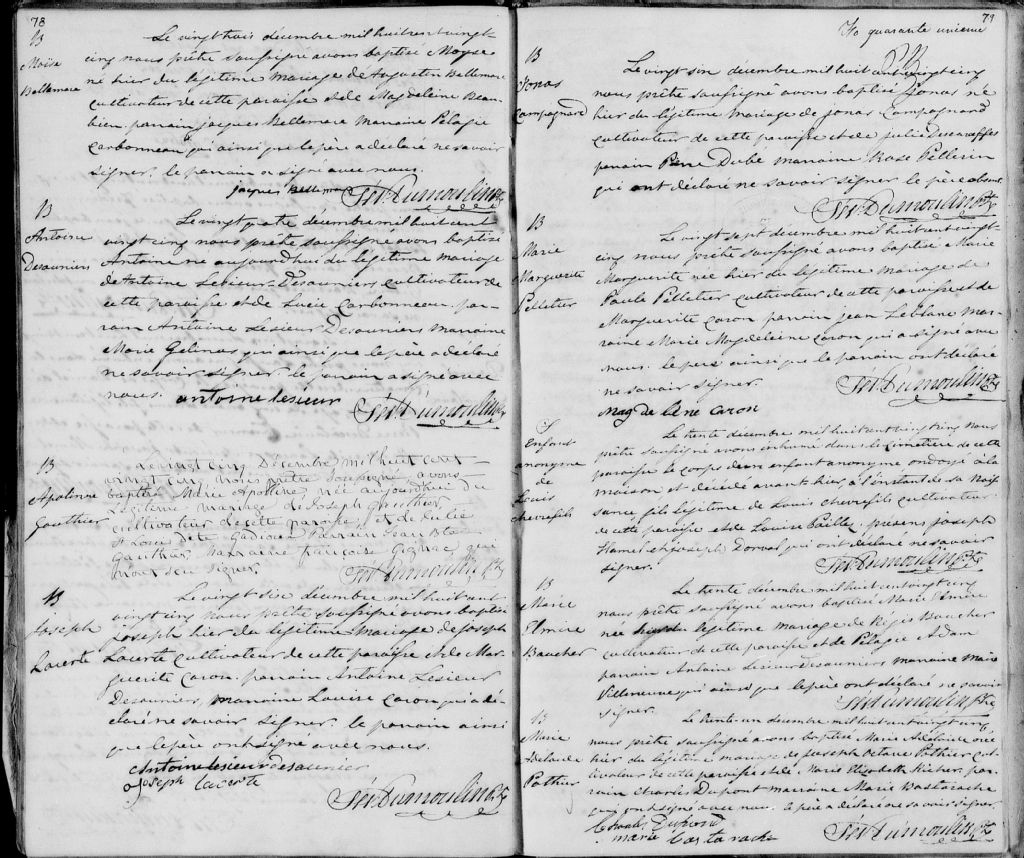 78
B
Moïse
Bellemare
Le vingt trois décembre mil huit cent vingt-
cinq nous prêtre soussigné avons baptisé Moyse
né hier du légitime mariage de Augustin Bellemare
cultivateur de cette paroisse et de Magdeleine Beau
bien. parrain jacques Bellemare Marraine Pélagie
Carbonneau qui ainsi que le père a déclaré ne savoir
signer. le parrain a signé avec nous.
jacques Bellemar Sév. Dumoulin Ptre
B
Antoine
Desauniers
Le vingt quatre décembre mil huit cent
vingt cinq nous prêtre soussigné avons baptisé
Antoine né aujourd'hui du légitime mariage
de Antoine Lesieur-Desauniers cultivateur de
cette paroisse et de Lucie Carbonneau. par-
rain Antoine Lesieur Desauniers marraine
Marie Gelinas qui ainsi que le père a déclaré
ne savoir signer le parrain a signé avec
nous. antoine lesieur Sév. Dumoulin Ptre
B
Apolinne
Gauthier
Le vingt cinq Décembre mil huit cent
vingt cinq, Nous prêtre soussigné, avons
baptisé Marie Apolline, née aujourd'hui du
Légitime mariage de Joseph Gauthier,
cultivateur de cette paroisse, et de Julie
St Louis dite Gadiou. Parrain Jean Bte
Gauthier, Marraine françoise Gignac qui
n'ont su signer. Sév. Dumoulin Ptre
B
Joseph
Lacerte
Le vingt six décembre mil huit cent
vingt cinq nous prêtre soussigné avons baptisé
Joseph hier du légitime mariage de Joseph
Lacerte cultivateur de cette paroisse et de Mar-
guerite Caron. parrain Antoine Lesieur
Desauniers, marraine Louise Caron qui a dé-
claré ne savoir signer. le parrain ainsi
que le père ont signé avec nous.
Antoine lesieur desaunier
joseph lacerte
Sév. Dumoulin Ptre
79
fo quarante unieme
B
Jonas
Campagnard
Le vingt six décembre mil huit cent vingt cinq
nous prêtre soussigné avons baptisé Jonas né
hier du légitime mariage de jonas Campagnard
cultivateur de cette paroisse et de julie
parrain Pierre Dubé marraine Rose Pellerin
qui ont déclaré ne savoir signer le père absent.
Sév. Dumoulin Ptre
B
Marie
Marguerite
Pelletier
Le vingt sept décembre mil huit cent vingt-
cinq nous prêtre soussigné avons baptisé Marie
Marguerite née hier du légitime mariage de
Paul Pelletier cultivateur de cette paroisse et de
Marguerite Caron parrain jean Leblanc mar-
raine Marie Magdeleine Caron qui a signé avec
nous. le père ainsi que le parrain ont déclaré
ne savoir signer. Sév. Dumoulin Ptre
Magdeléne caron
S
Enfant
anonyme
de
Louis
chevrefils
Le trente décembre mil huit cent vingt cinq nous
prêtre soussigné avons inhumé dans le cimetière de cette
paroisse le corps d'un enfant anonyme ondoyé à la
maison et décédé avant hier à l'instant de sa nais
sance fils légitime de Louis chevrefils cultivateur
de cette paroisse et de Louise Baille. présens joseph
Hamel et joseph Dorval qui ont déclaré ne savoir
signer. Sév. Dumoulin Ptre
B
Marie
Elmire
Baucher
Le trente décembre mil huit cent vingt cinq
nous prêtre soussigné avons baptisé Marie Elmire
née hier du légitime mariage de Régis Baucher
cultivateur de cette paroisse et de Pélagie Adam
parrain Antoine Lesieur Desauniers marraine Marie
Villeneuve qui ainsi que le père ont déclaré ne savoir
signer. Sév. Dumoulin Ptre
B
Marie
Adelaide
Pothier
Le trente-un décembre mil huit cent vingt cinq
nous prêtre soussigné avons baptisé Marie Adelaïde née
hier du légitime mariage de joseph Octave Pothier cul-
tivateur de cette paroisse et de Marie Elizabeth Richer. par-
rain charles Dupont marraine Marie Bastarache
qui ont signé avec nous. le père a déclaré ne savoir signer
Charles Dupond
marie bastarache
Sév. Dumoulin Ptre